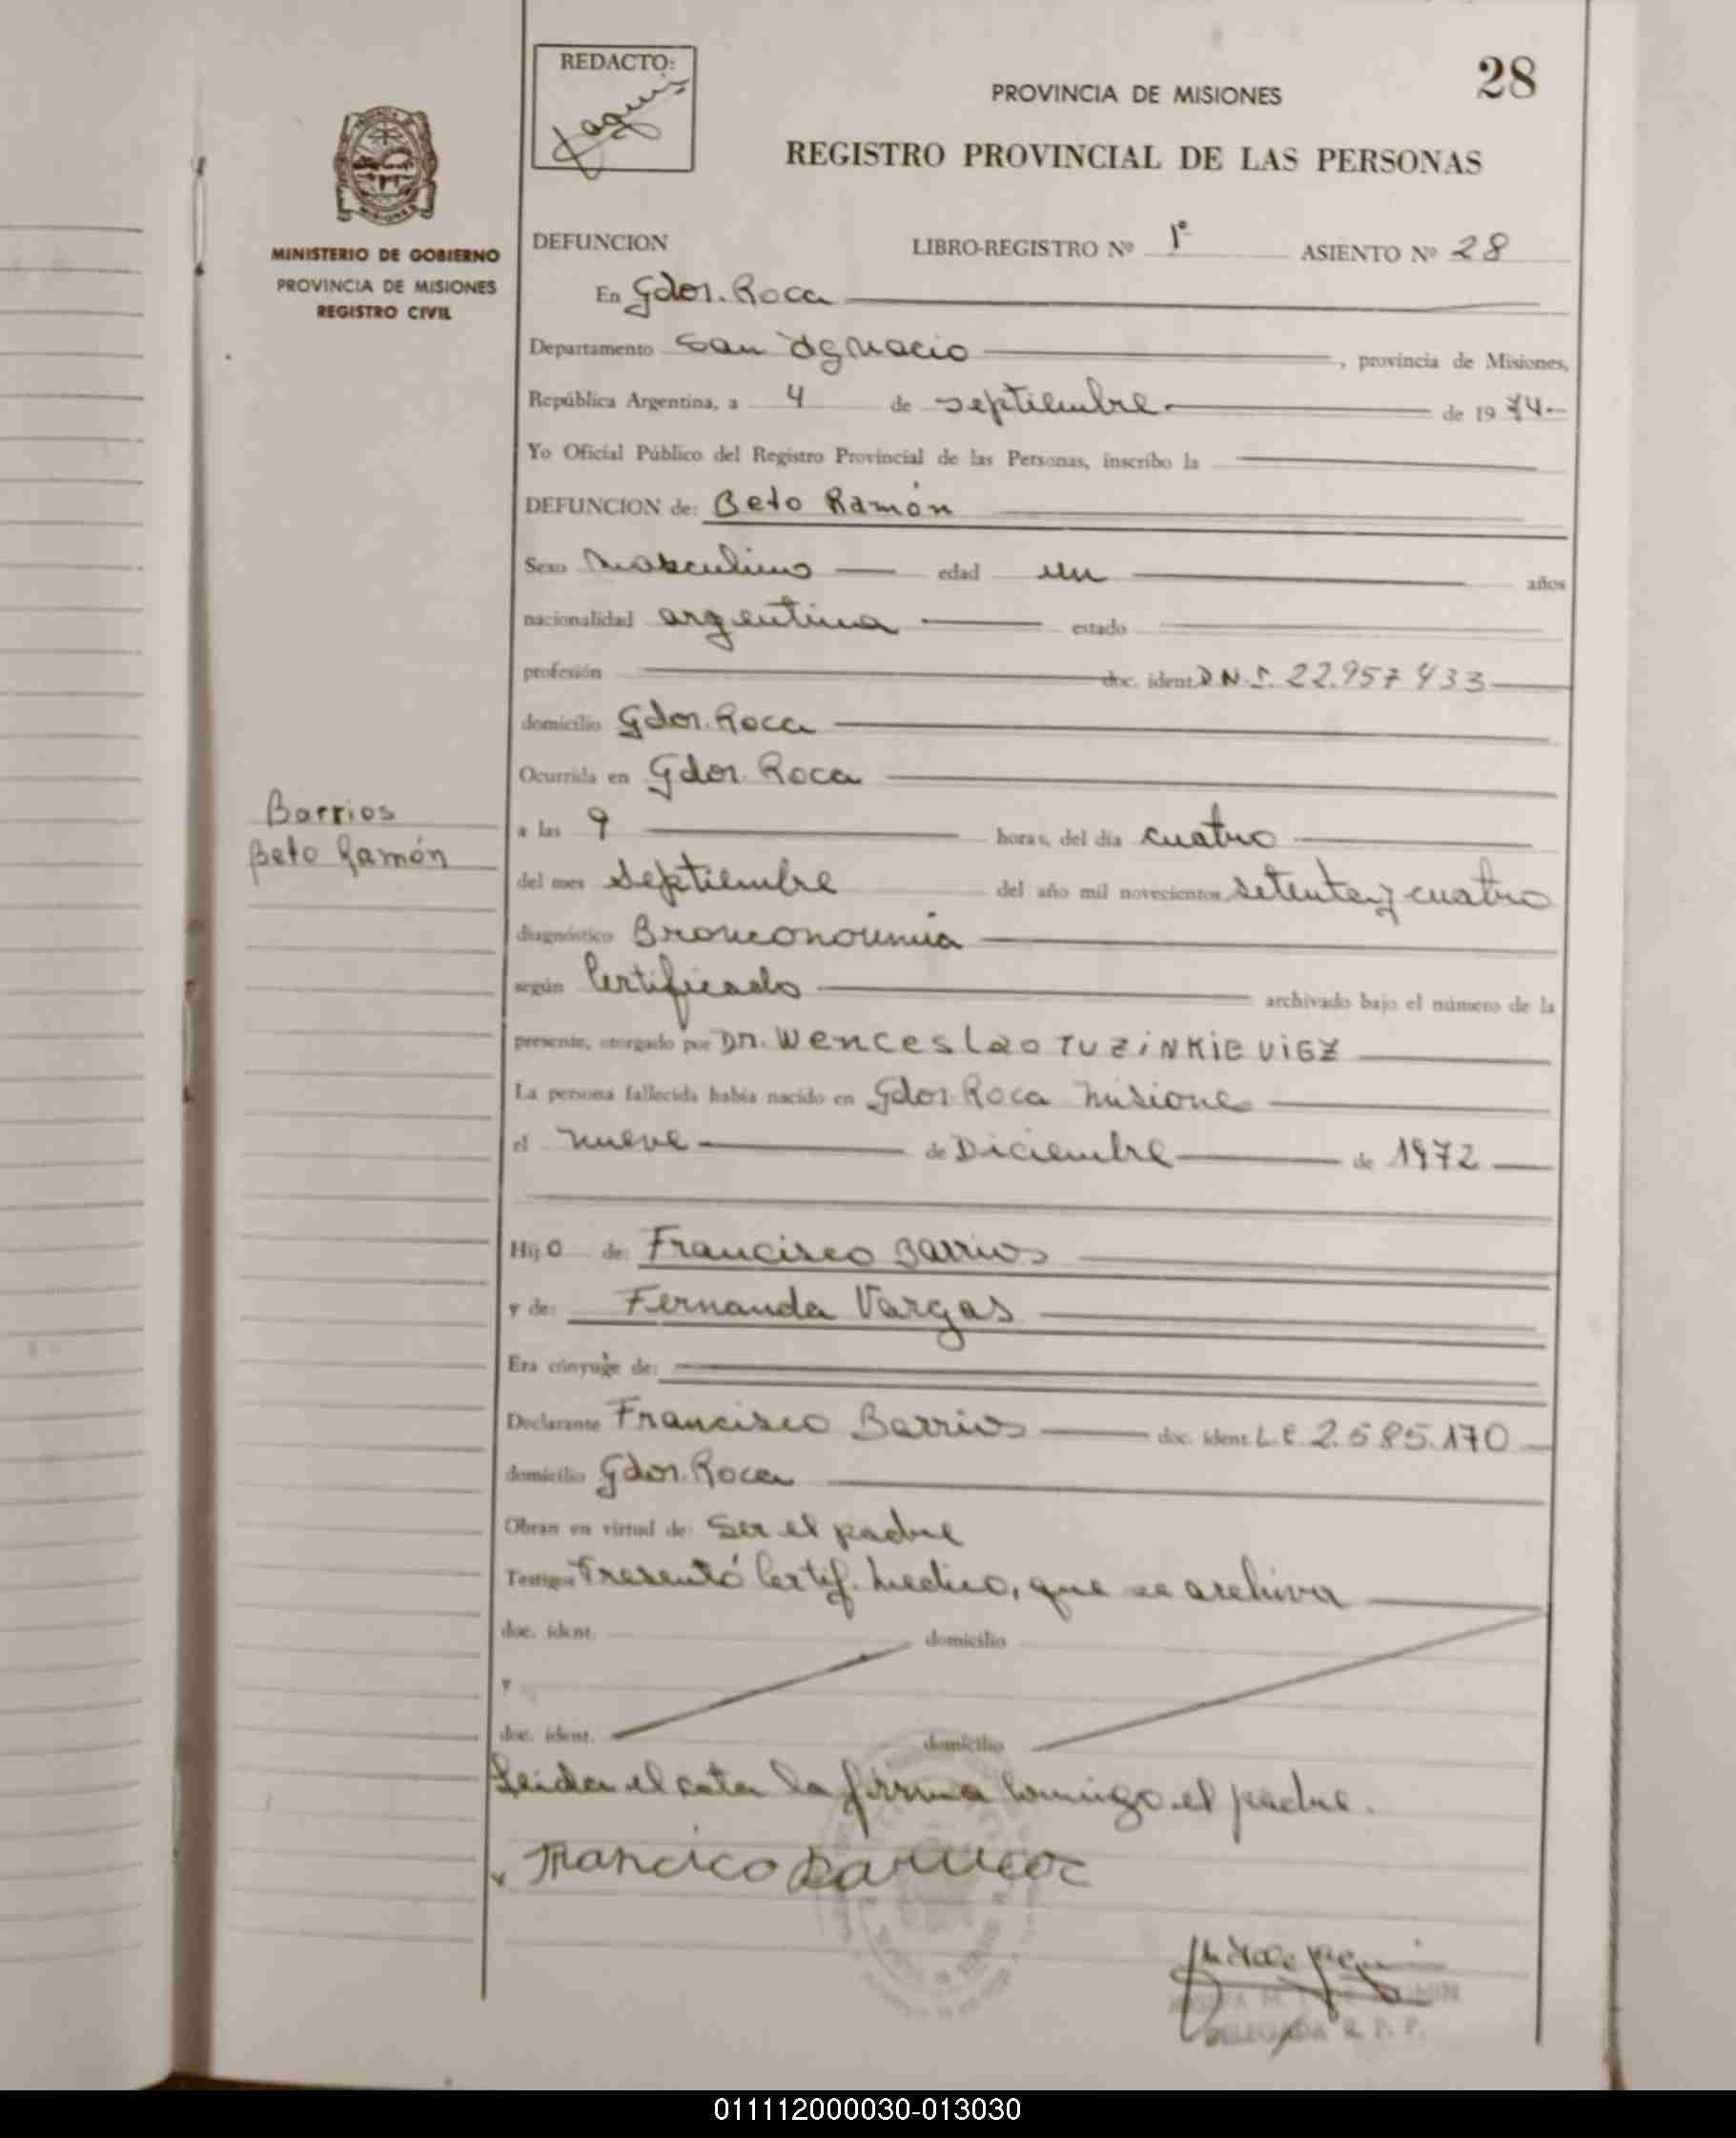 REDACTO:
28
PROVINCIA DE MISIONES
REGISTRO PROVINCIAL DE LAS PERSONAS
MISIONES
MINISTERIO DE GOBIERNO
PROVINCIA DE MISIONES
REGISTRO CIVIL
DEFUNCION LIBRO-REGISTRO Nº 1º ASIENTO Nº 28
En Gdor. Roca
Departamento San Ignacio, provincia de Misiones,
República Argentina, a 4 de septiembre de 1974-
Yo Oficial Público del Registro Provincial de las Personas, inscribo la
DEFUNCION de: Beto Ramón
Sexo Masculino edad un años
nacionalidad argentina estado
profesión doc. ident. D.N.I. 22.957433
domicilio Gdor. Roca
Ocurrida en Gdor. Roca
Barrios
Beto Ramón
a las 9 horas, del día cuatro
del mes Septiembre del año mil novecientos setenta y cuatro
diagnóstico Bronconoumia
según Certificado archivado bajo el número de la
presente, otorgado por Dr. Wenceslao TUZINKIEVIEZ
La persona fallecida había nacido en Gdor Roca Misione
el nueve de Diciembre de 1972
Hijo de: Francisco Barrios
y de: Fernanda Vargas
Era cónyuge de:
Declarante Francisco Barrios doc. ident. L.E. 2.585.170
domicilio Gdor. Roca
Obran en virtud de: Ser el padre
Testigos Presentó Certif. Medico, que se archiva
doc. ident. domicilio
y
doc. ident. domicilio
Leida el acta la firma comigo el padre.
Francico Barrios
DELEGADA R. P. P.
011112000030-013030